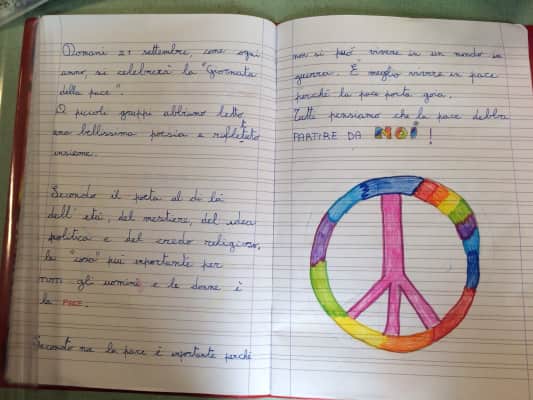 Domani 21 settembre, come ogni
anno, si celebrerà la "Giornata
della pace".
A piccoli gruppi abbiamo letto
una bellissima poesia e riflettuto
insieme.
Secondo il poeta al di là
dell'età, del mestiere, del idea
politica e del credo religioso,
la "cosa" più importante per
noi gli uomini e le donne è
la PACE.
Secondo noi la pace è importante perché
non si può vivere in un mondo in
guerra. È meglio vivere in pace
perché la pace porta gioia.
Tutti pensiamo che la pace debba
PARTIRE DA NOI!